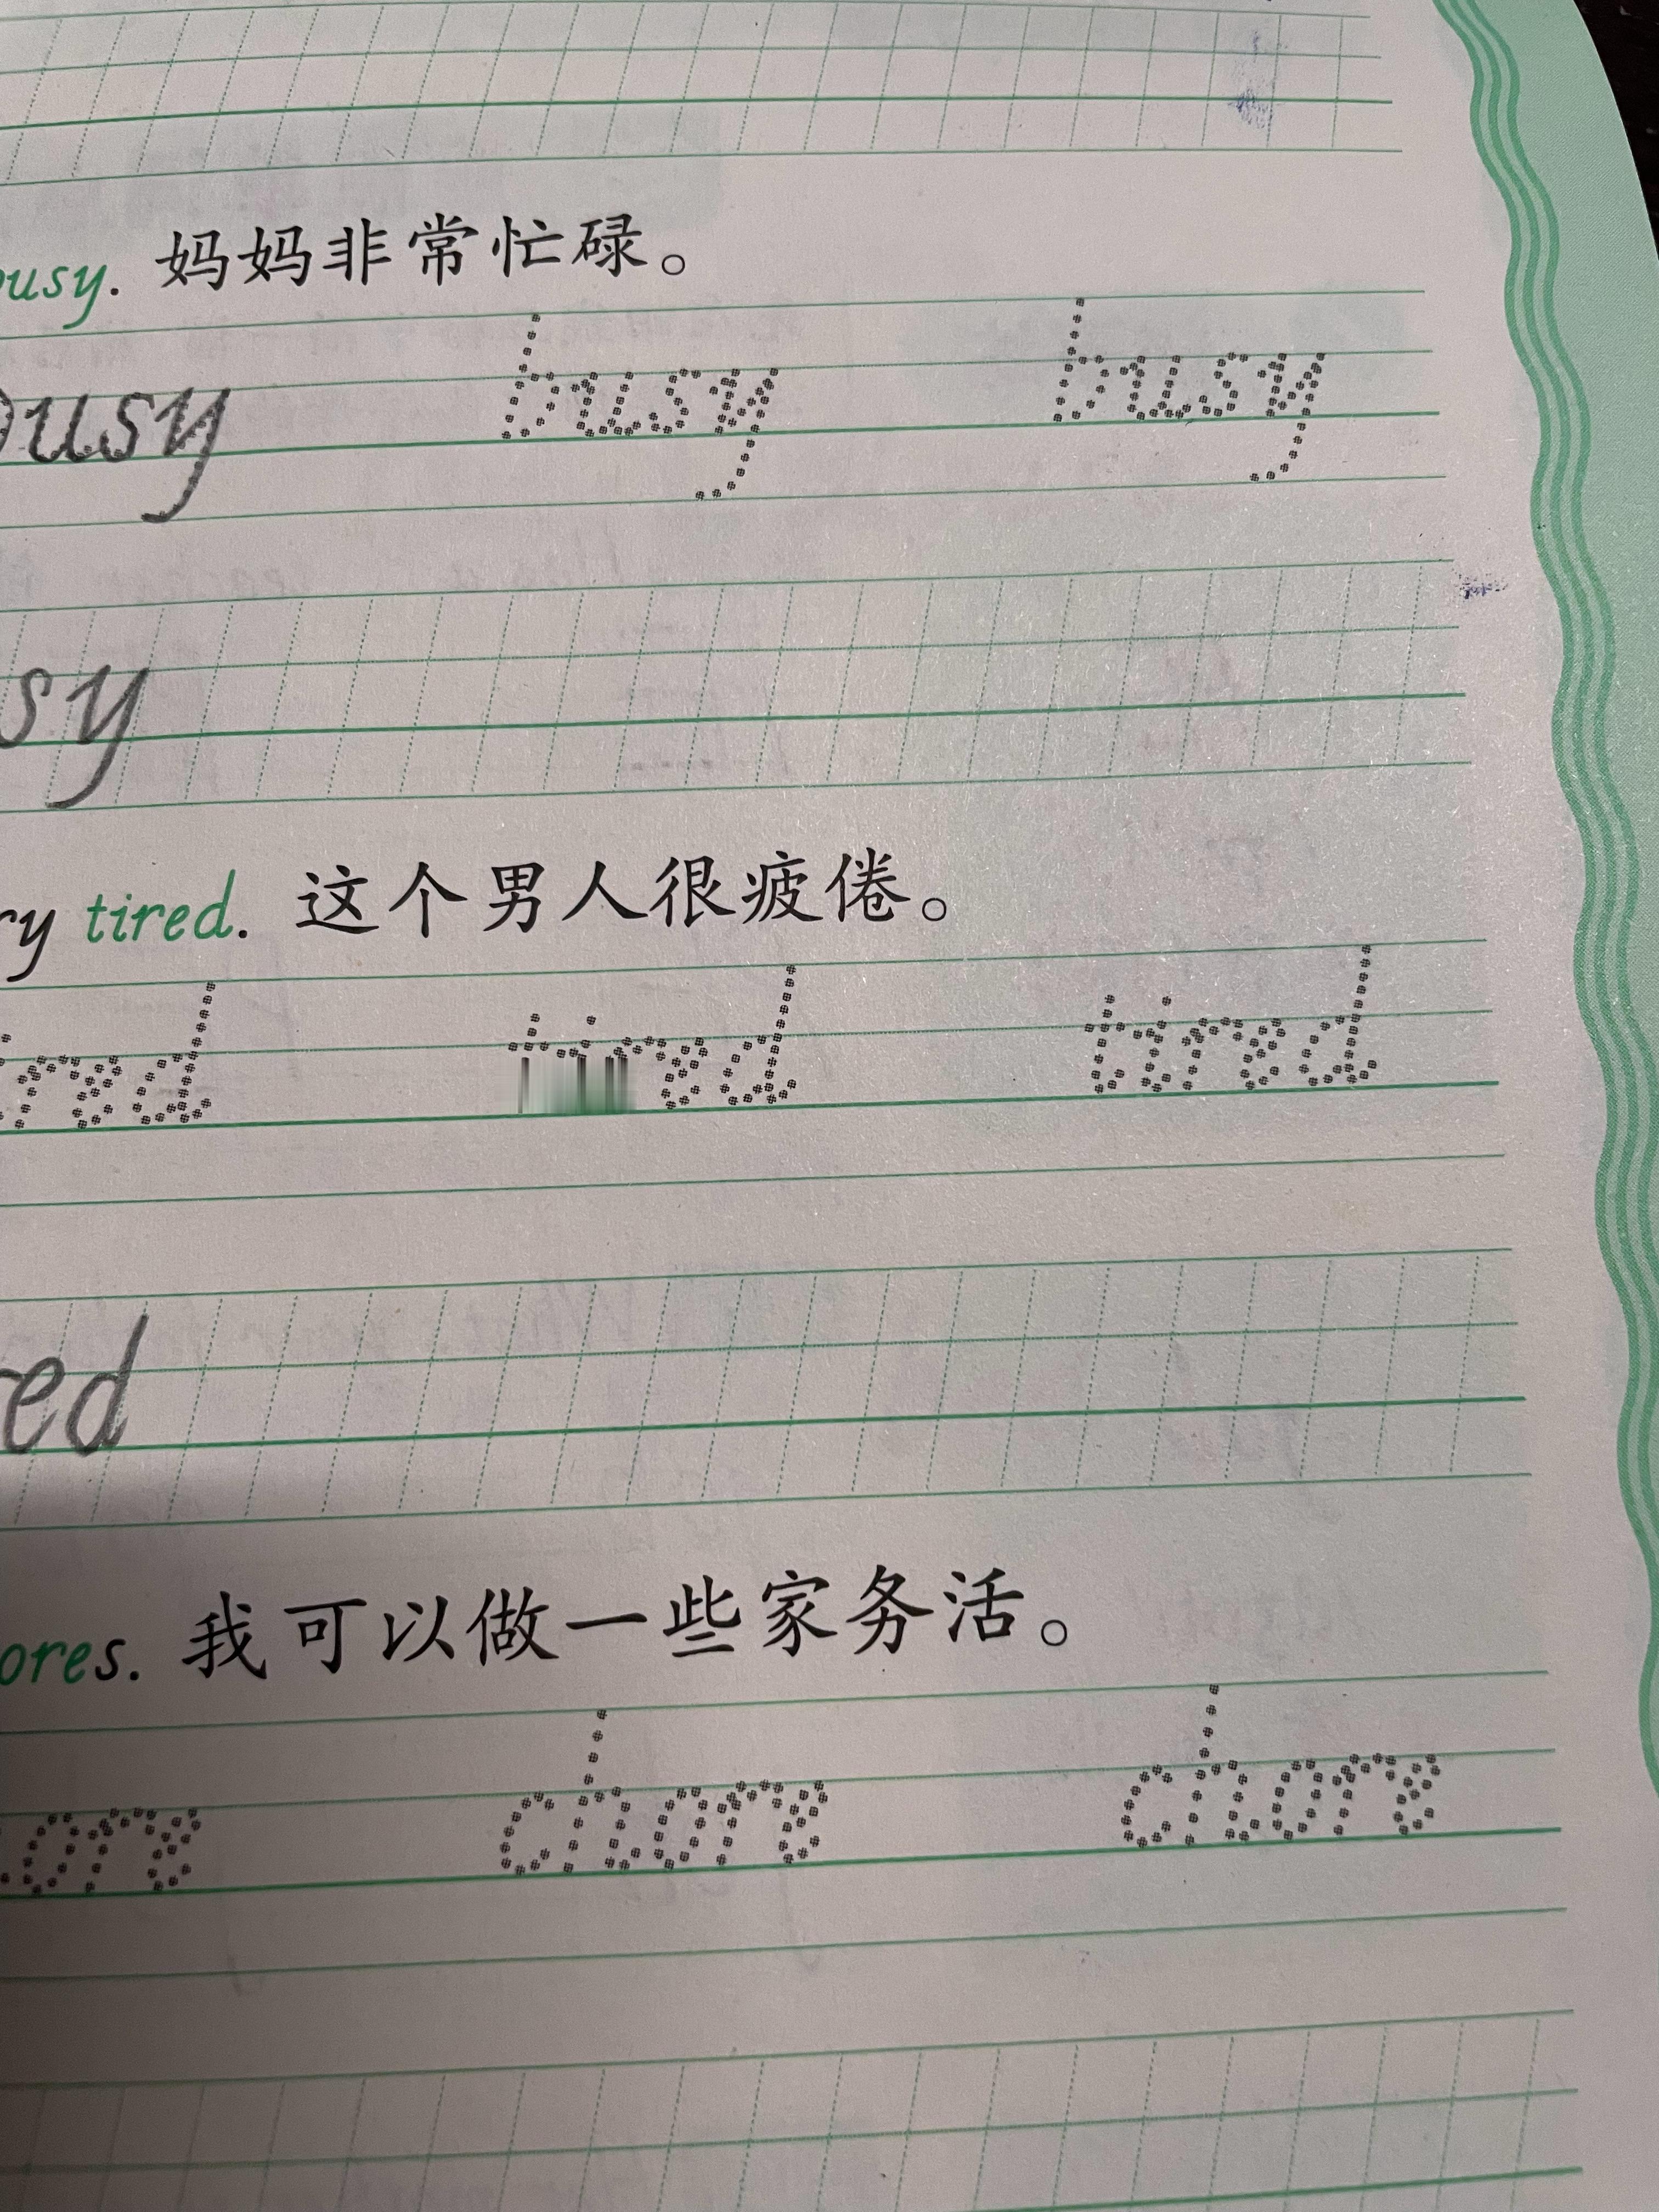 usy. 妈妈非常忙碌。
busy busy busy
sy
ry tired. 这个男人很疲倦。
tired tired
red
ores. 我可以做一些家务活。
ore chore chore